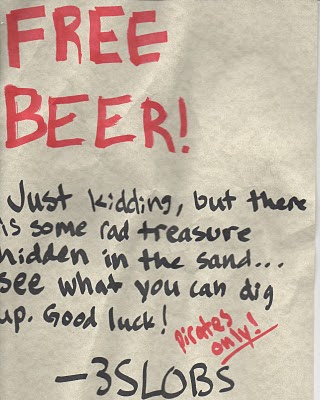 FREE
BEER!
Just kidding, but there
is some rad treasure
hidden in the sand...
see what you can dig
up. Good luck!
pirates
only!
—3SLOBS